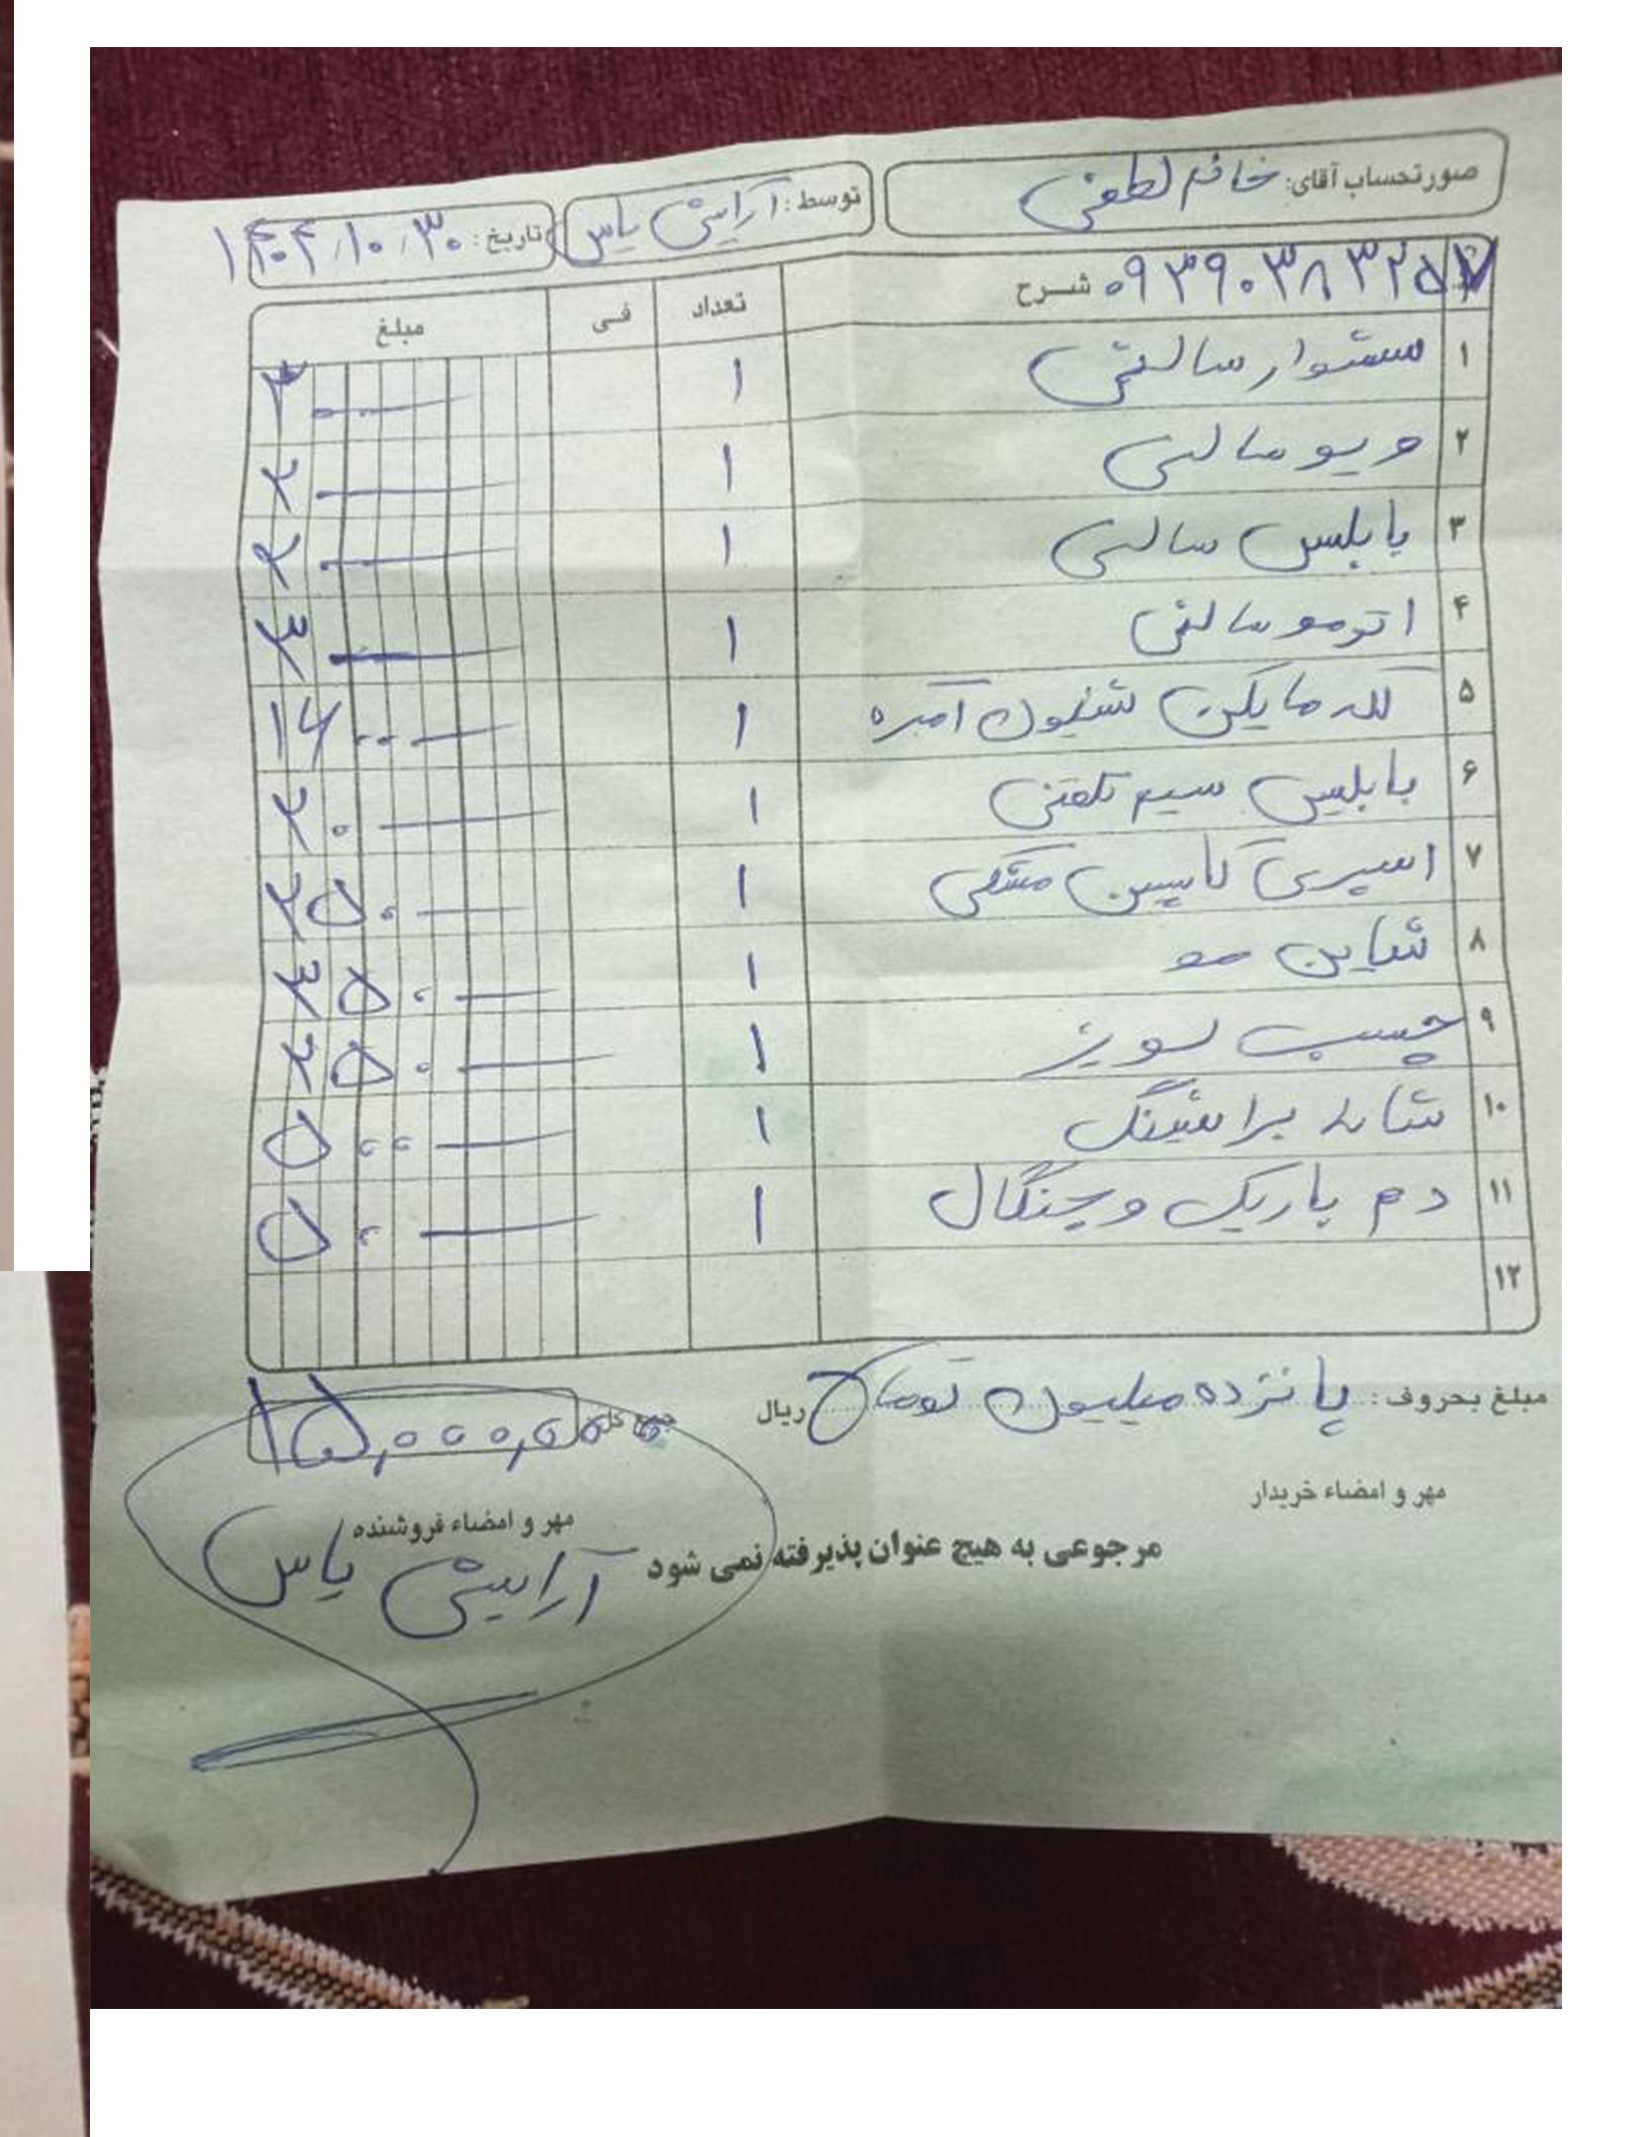 صورتحساب آقای: خانم لطفی توسط: آرایش یاس تاریخ: ۱۴۰۴/۱۰/۳۰
۰۹۳۹۰۳۸۳۲۵۷
شرح تعداد فی مبلغ
۱ سشوار سالنی ۱ ۳
۲ ویو سالنی ۱ ۲
۳ بابلیس سالنی ۱ ۲
۴ اتومو سالنی ۱ ۳
۵ کله مایکن شنیون آمبره ۱
۶ بابلیس سیم تلفنی ۱ ۲۰
۷ اسپری کاپین مشکی ۱ ۲۵۰
۸ شاین مو ۱ ۳۵۰
۹ چسب لوریز ۱ ۲۵۰
۱۰ شانه براشینگ ۱ ۵۰۰
۱۱ دم باریک و چنگال ۱ ۵۰
۱۲
مبلغ بحروف: پانزده میلیون تومان ریال جمع کل ۱۵,۰۰۰,۰۰۰
مهر و امضاء خریدار مهر و امضاء فروشنده
مرجوعی به هیچ عنوان پذیرفته نمی شود
آرایش یاس